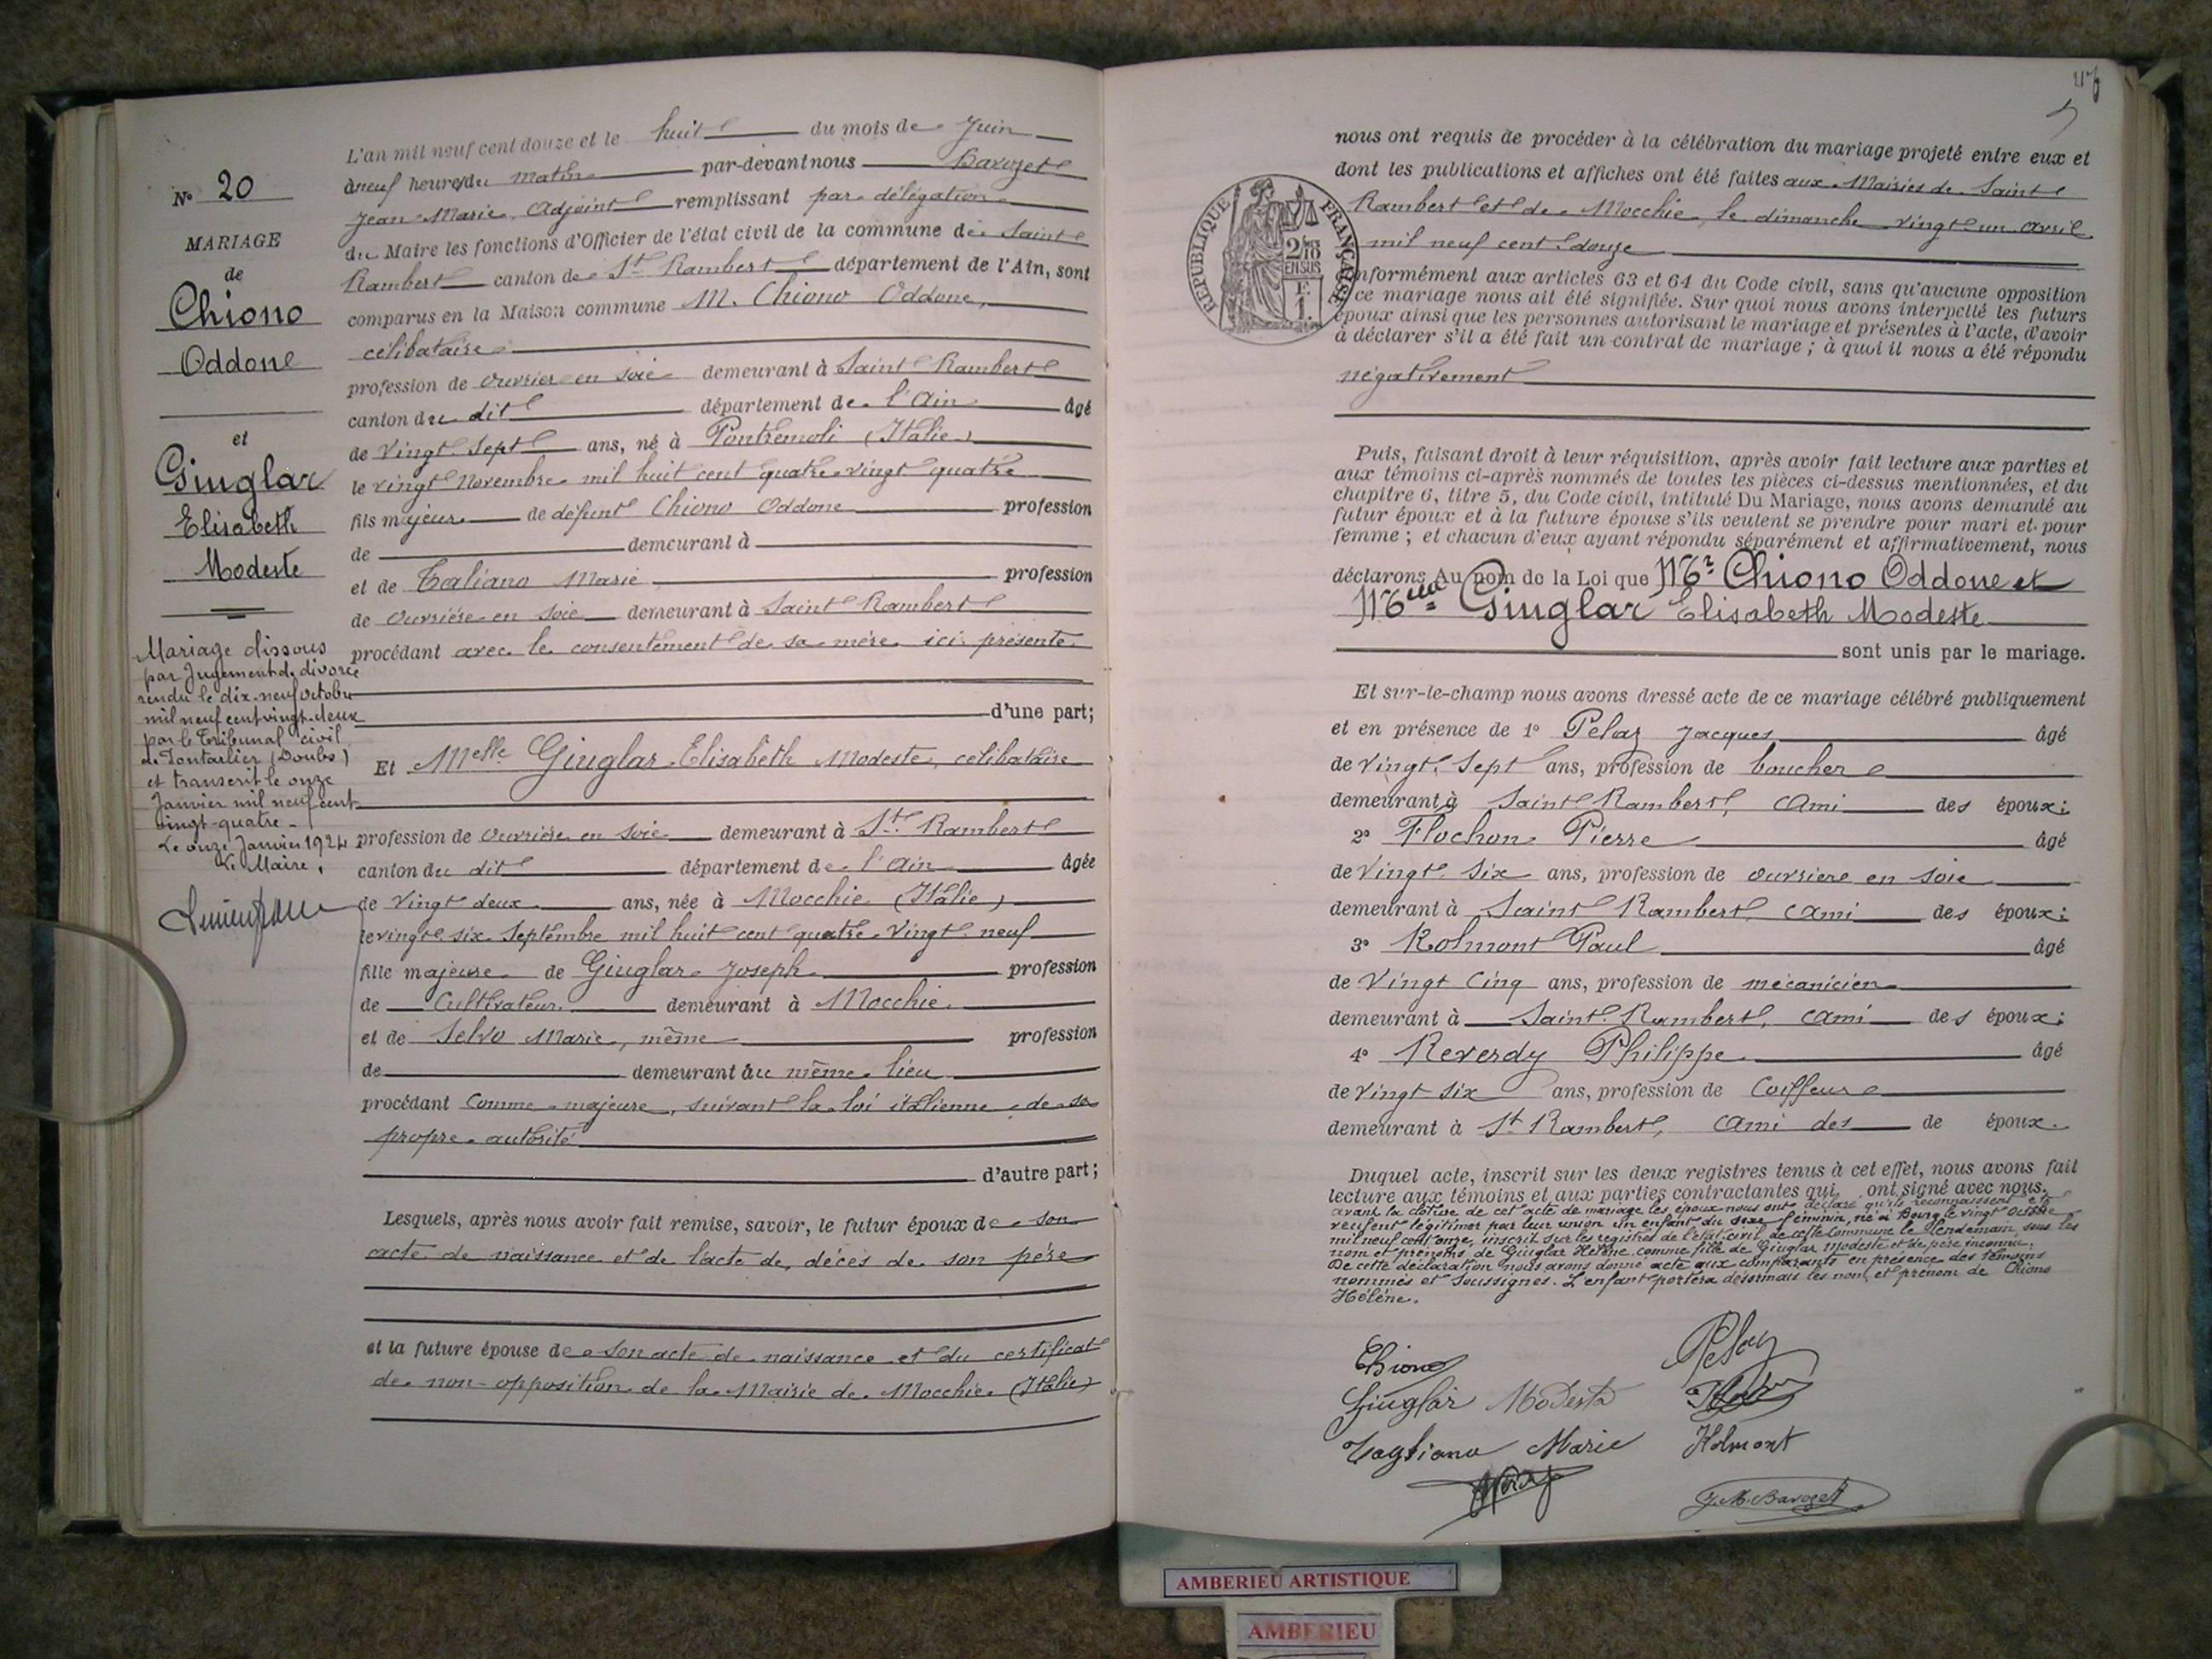 N° 20
MARIAGE
de
Chiono
Oddone
et
Giuglar
Elisabeth
Modeste
Mariage dissous
par Jugement de divorce
rendu le dix-neuf octobre
mil neuf cent vingt-deux
par le Tribunal civil
de Pontarlier (Doubs)
et transcrit le onze
Janvier mil neuf cent
vingt-quatre -
Le onze Janvier 1924
Le Maire,
L'an mil neuf cent douze et le huit du mois de Juin
à neuf heures du matin par-devant nous Barozet
Jean Marie Adjoint remplissant par délégation
du Maire les fonctions d'Officier de l'état civil de la commune de Saint
Rambert canton de St Rambert département de l'Ain, sont
comparus en la Maison commune M. Chiono Oddone,
célibataire
profession de ouvrier en soie demeurant à Saint Rambert
canton du dit département de l'Ain âgé
de vingt sept ans, né à Pontremoli (Italie)
le vingt Novembre mil huit cent quatre vingt quatre
fils majeur de défunt Chiono Oddone profession
de demeurant à
et de Taliano Marie profession
de ouvrière en soie demeurant à Saint Rambert
procédant avec le consentement de sa mère ici présente
d'une part;
Et Melle Giuglar Elisabeth Modeste, célibataire
profession de ouvrière en soie demeurant à St. Rambert
canton du dit département de l'Ain âgée
de vingt deux ans, née à Mocchie (Italie)
le vingt six Septembre mil huit cent quatre vingt neuf
fille majeure de Giuglar Joseph profession
de Cultivateur demeurant à Mocchie
et de Selvo Marie, même profession
de demeurant au même lieu
procédant comme majeure, suivant la loi italienne de sa
propre autorité
d'autre part;
Lesquels, après nous avoir fait remise, savoir, le futur époux de son
acte de naissance et de l'acte de décès de son père
et la future épouse de son acte de naissance et du certificat
de non-opposition de la Mairie de Mocchie (Italie)
nous ont requis de procéder à la célébration du mariage projeté entre eux et
dont les publications et affiches ont été faites aux Mairies de Saint
Rambert et de Mocchie, le dimanche vingt un avril
mil neuf cent douze
RÉPUBLIQUE FRANÇAISE
2/10 EN SUS
1 F.
conformément aux articles 63 et 64 du Code civil, sans qu'aucune opposition
à ce mariage nous ait été signifiée. Sur quoi nous avons interpellé les futurs
époux ainsi que les personnes autorisant le mariage et présentes à l'acte, d'avoir
à déclarer s'il a été fait un contrat de mariage; à quoi il nous a été répondu
négativement
Puis, faisant droit à leur réquisition, après avoir fait lecture aux parties et
aux témoins ci-après nommés de toutes les pièces ci-dessus mentionnées, et du
chapitre 6, titre 5, du Code civil, intitulé Du Mariage, nous avons demandé au
futur époux et à la future épouse s'ils veulent se prendre pour mari et pour
femme; et chacun d'eux ayant répondu séparément et affirmativement, nous
déclarons Au nom de la Loi que Mr Chiono Oddone et
Melle Giuglar Elisabeth Modeste
sont unis par le mariage.
Et sur-le-champ nous avons dressé acte de ce mariage célébré publiquement
et en présence de 1° Pelaz Jacques âgé
de vingt sept ans, profession de boucher
demeurant à Saint Rambert, ami des époux;
2° Flochon Pierre âgé
de vingt six ans, profession de ouvrière en soie
demeurant à Saint Rambert, ami des époux;
3° Kolmont Paul âgé
de vingt cinq ans, profession de mécanicien
demeurant à Saint Rambert, ami des époux;
4° Reverdy Philippe âgé
de vingt six ans, profession de coiffeur
demeurant à St Rambert, ami des de époux.
Duquel acte, inscrit sur les deux registres tenus à cet effet, nous avons fait
lecture aux témoins et aux parties contractantes qui ont signé avec nous.
avant la clôture de cet acte de mariage les époux nous ont déclaré qu'ils reconnaissent et
veulent légitimer par leur union un enfant du sexe féminin, né à Bourg le vingt octobre
mil neuf cent onze, inscrit sur les registres de l'état civil de cette commune le lendemain sous les
nom et prénoms de Giuglar Hélène comme fille de Giuglar Modeste et de père inconnu.
De cette déclaration nous avons donné acte aux comparants en présence des témoins
nommés et soussignés. L'enfant portera désormais les nom et prénom de Chiono
Hélène.
Chiono
Pelaz
Giuglar Modesta
Tagliano Marie
Kolmont
J. M. Barozet
AMBERIEU ARTISTIQUE
AMBERIEU